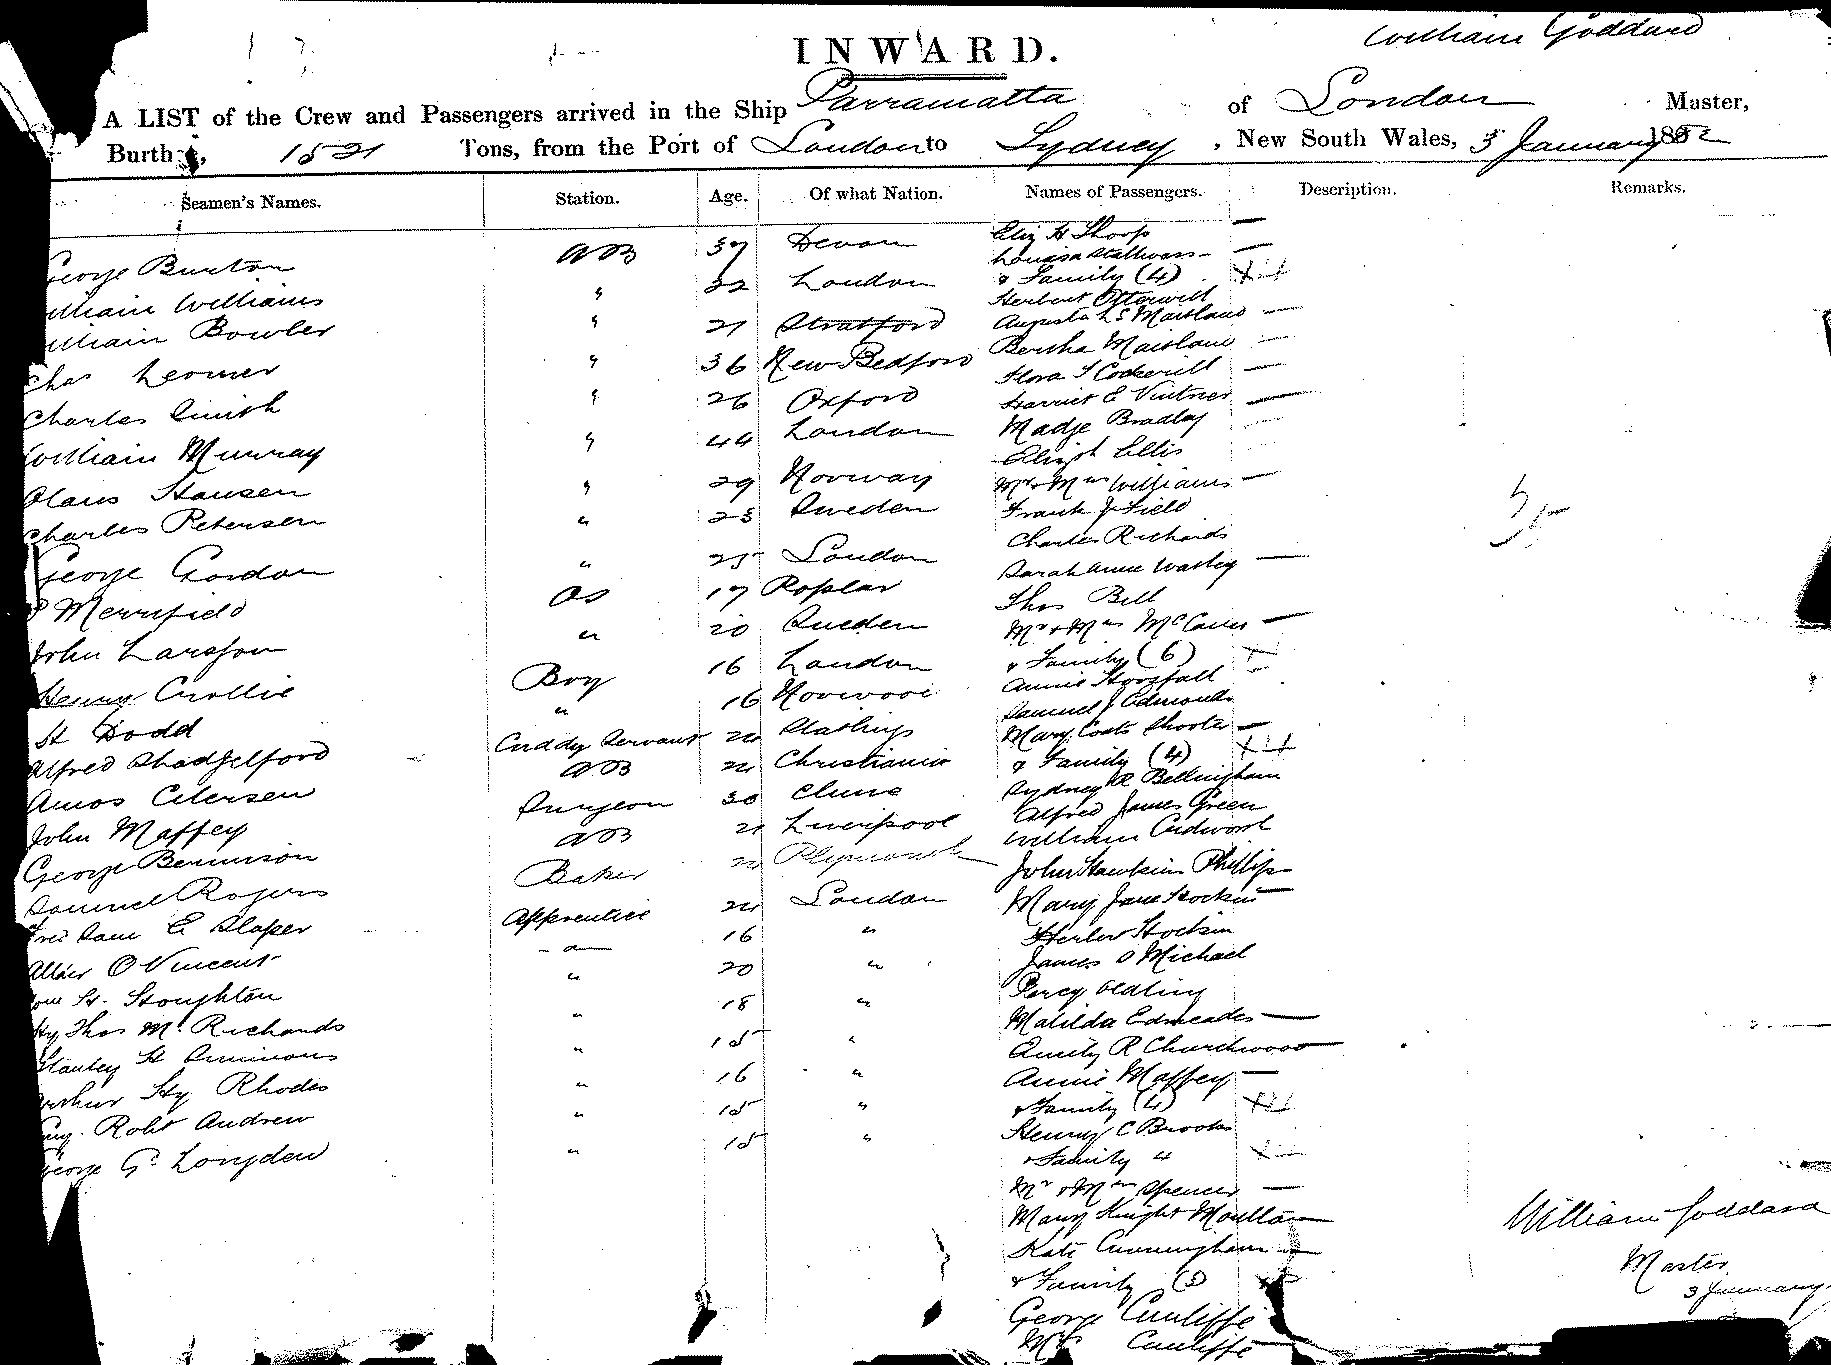 INWARD.
William Goddard
A LIST of the Crew and Passengers arrived in the Ship Parramatta of London Master,
Burthen, 1521 Tons, from the Port of London to Sydney, New South Wales, 3 January 1882
Seamen's Names. Station. Age. Of what Nation. Names of Passengers. Description. Remarks.
George Burton AB 37 Devon
William Williams " 22 London
William Bowler " 21 Stratford
Chas " 36 New Bedford
Charles Smith " 26 Oxford
William Murray " 44 London
Olaus Hansen " 29 Norway
Charles Petersen " 23 Sweden
George Gordon " 25 London
Merryfield OS 17 Poplar
John Larsson " 20 Sweden
Henry Crollie Boy 16 London
H Dodd " 16 Norwood
Alfred Shadgelford Cuddy Servant 24 Hastings
Amos Petersen AB 24 Christiania
John Maffey Surgeon 30 Clune
George Bennison AB 21 Liverpool
Samuel Rogers Baker 24 Plymouth
Sam E Slaper Apprentice 24 London
O Vincent " 16 "
H. Stoughton " 20 "
Hy Thos M. Richards " 18 "
Stanley H Simmons " 15 "
Arthur Hy Rhodes " 16 "
Robt Andrew " 15 "
George G. Longden " 15 "
Eliz H Thorp
Louisa Stallwors
& Family (4)
Herbert Otterwill
Augusta L S Maitland
Bertha Maitland
Flora T Cockerill
Harriet E Vintner
Madge Bradley
Elizth Ellis
Mr & Mrs Williams
Frank J Field
Charles Richards
Sarah Anne Wasley
Thos Bell
Mr & Mrs
& Family (6)
Annie Horsfall
Samuel J Edmonds
Mary Coats Shorter
& Family (4)
Sydney R Bellingham
Alfred James Green
William Cudworth
John Hawkins Phillips
Mary Jane Hockin
Herber Hockin
James O Michael
Percy Oldling
Matilda Edmeades
Emily R Churchwood
Annie Maffey
& Family (4)
Henry C Brooks
& Family 4
Mr & Mrs Spencer
Mary Knight Moulton
Kate Cunningham
& Family (5)
George Cunliffe
Mrs Cunliffe
William Goddard
Master
3 January